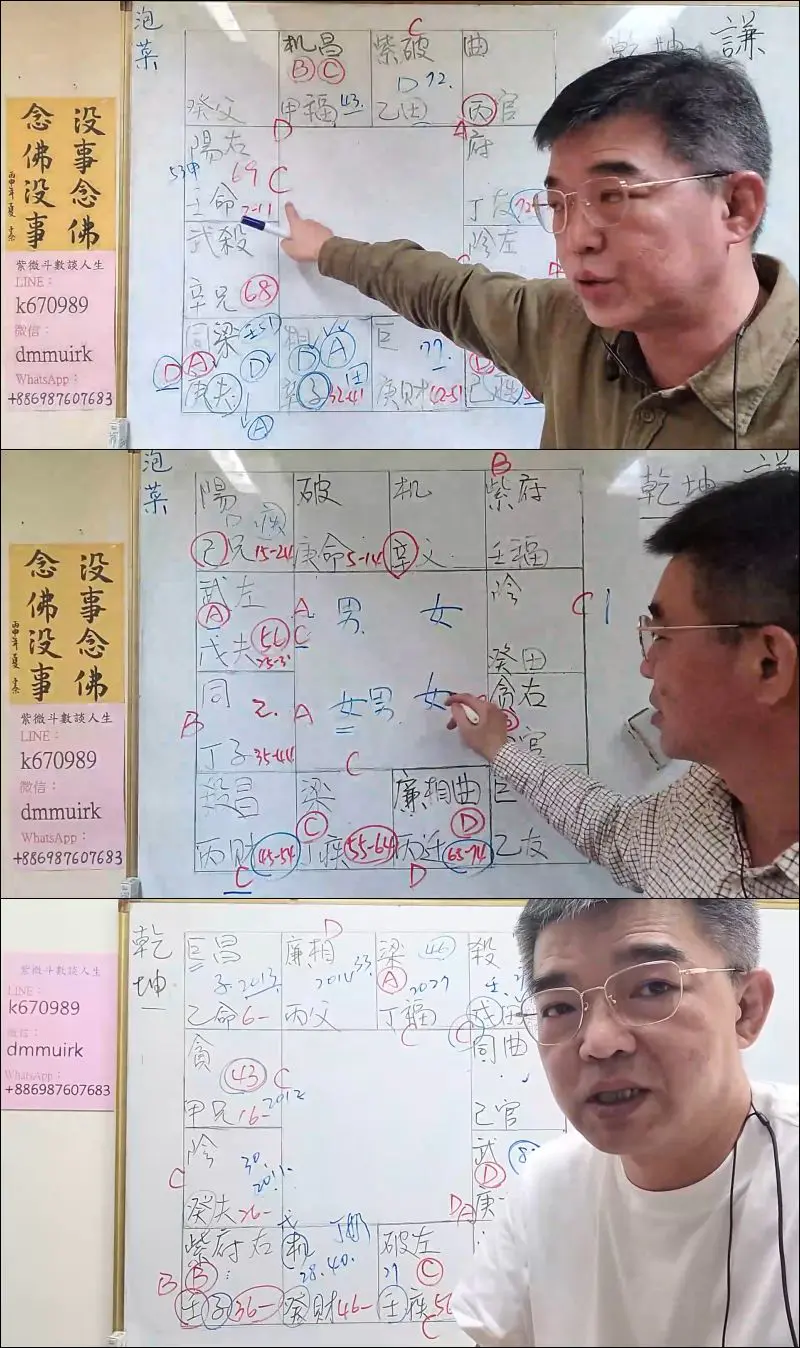 泡菜
机昌
B C
C
紫破
D 72.
曲
乾坤 謙
癸父
甲福 43.
乙田
丙官
没事念佛
念佛没事
陽右
D
A
府
53甲
69 C
壬命 2-11
丁友
武殺
陰左
辛兄 68
紫微斗數談人生
LINE：
k670989
微信：
dmmuirk
WhatsApp：
+886987607683
同梁
相
D A
巨
77
D A D
庚夫
A
子 32-41
庚財 42-51
己姓
泡菜
陽
破
机
B
紫府
乾坤
己兄 15-24
庚命 5-14
辛父
壬福
没事念佛
念佛没事
武左
A
A
C
男 女
陰
C
戊夫 56
癸田
同 2.
A
女男 女
貪右
B
丁子 35-44
C
官
紫微斗數談人生
LINE：
k670989
微信：
dmmuirk
WhatsApp：
+886987607683
殺昌
梁
C
廉相曲
D
巨
丙財 45-54
疾 55-64
丙迁 65-74
乙友
C
D
乾坤
巨昌
D
廉相
梁 46
A
殺
子 2013
2014 33
2027
乙命 6-
丙父
丁福
戊田
紫微斗數談人生
LINE：
k670989
微信：
dmmuirk
WhatsApp：
+886987607683
貪
C
C
同曲
43 C
2012
甲兄 16-
己官
陰
30.
2011.
C
武
D
癸夫 26-
庚
DA
紫府右
机
破左
B B
28. 40.
27
C
壬子 36-
癸財 46-
壬疾 56
C